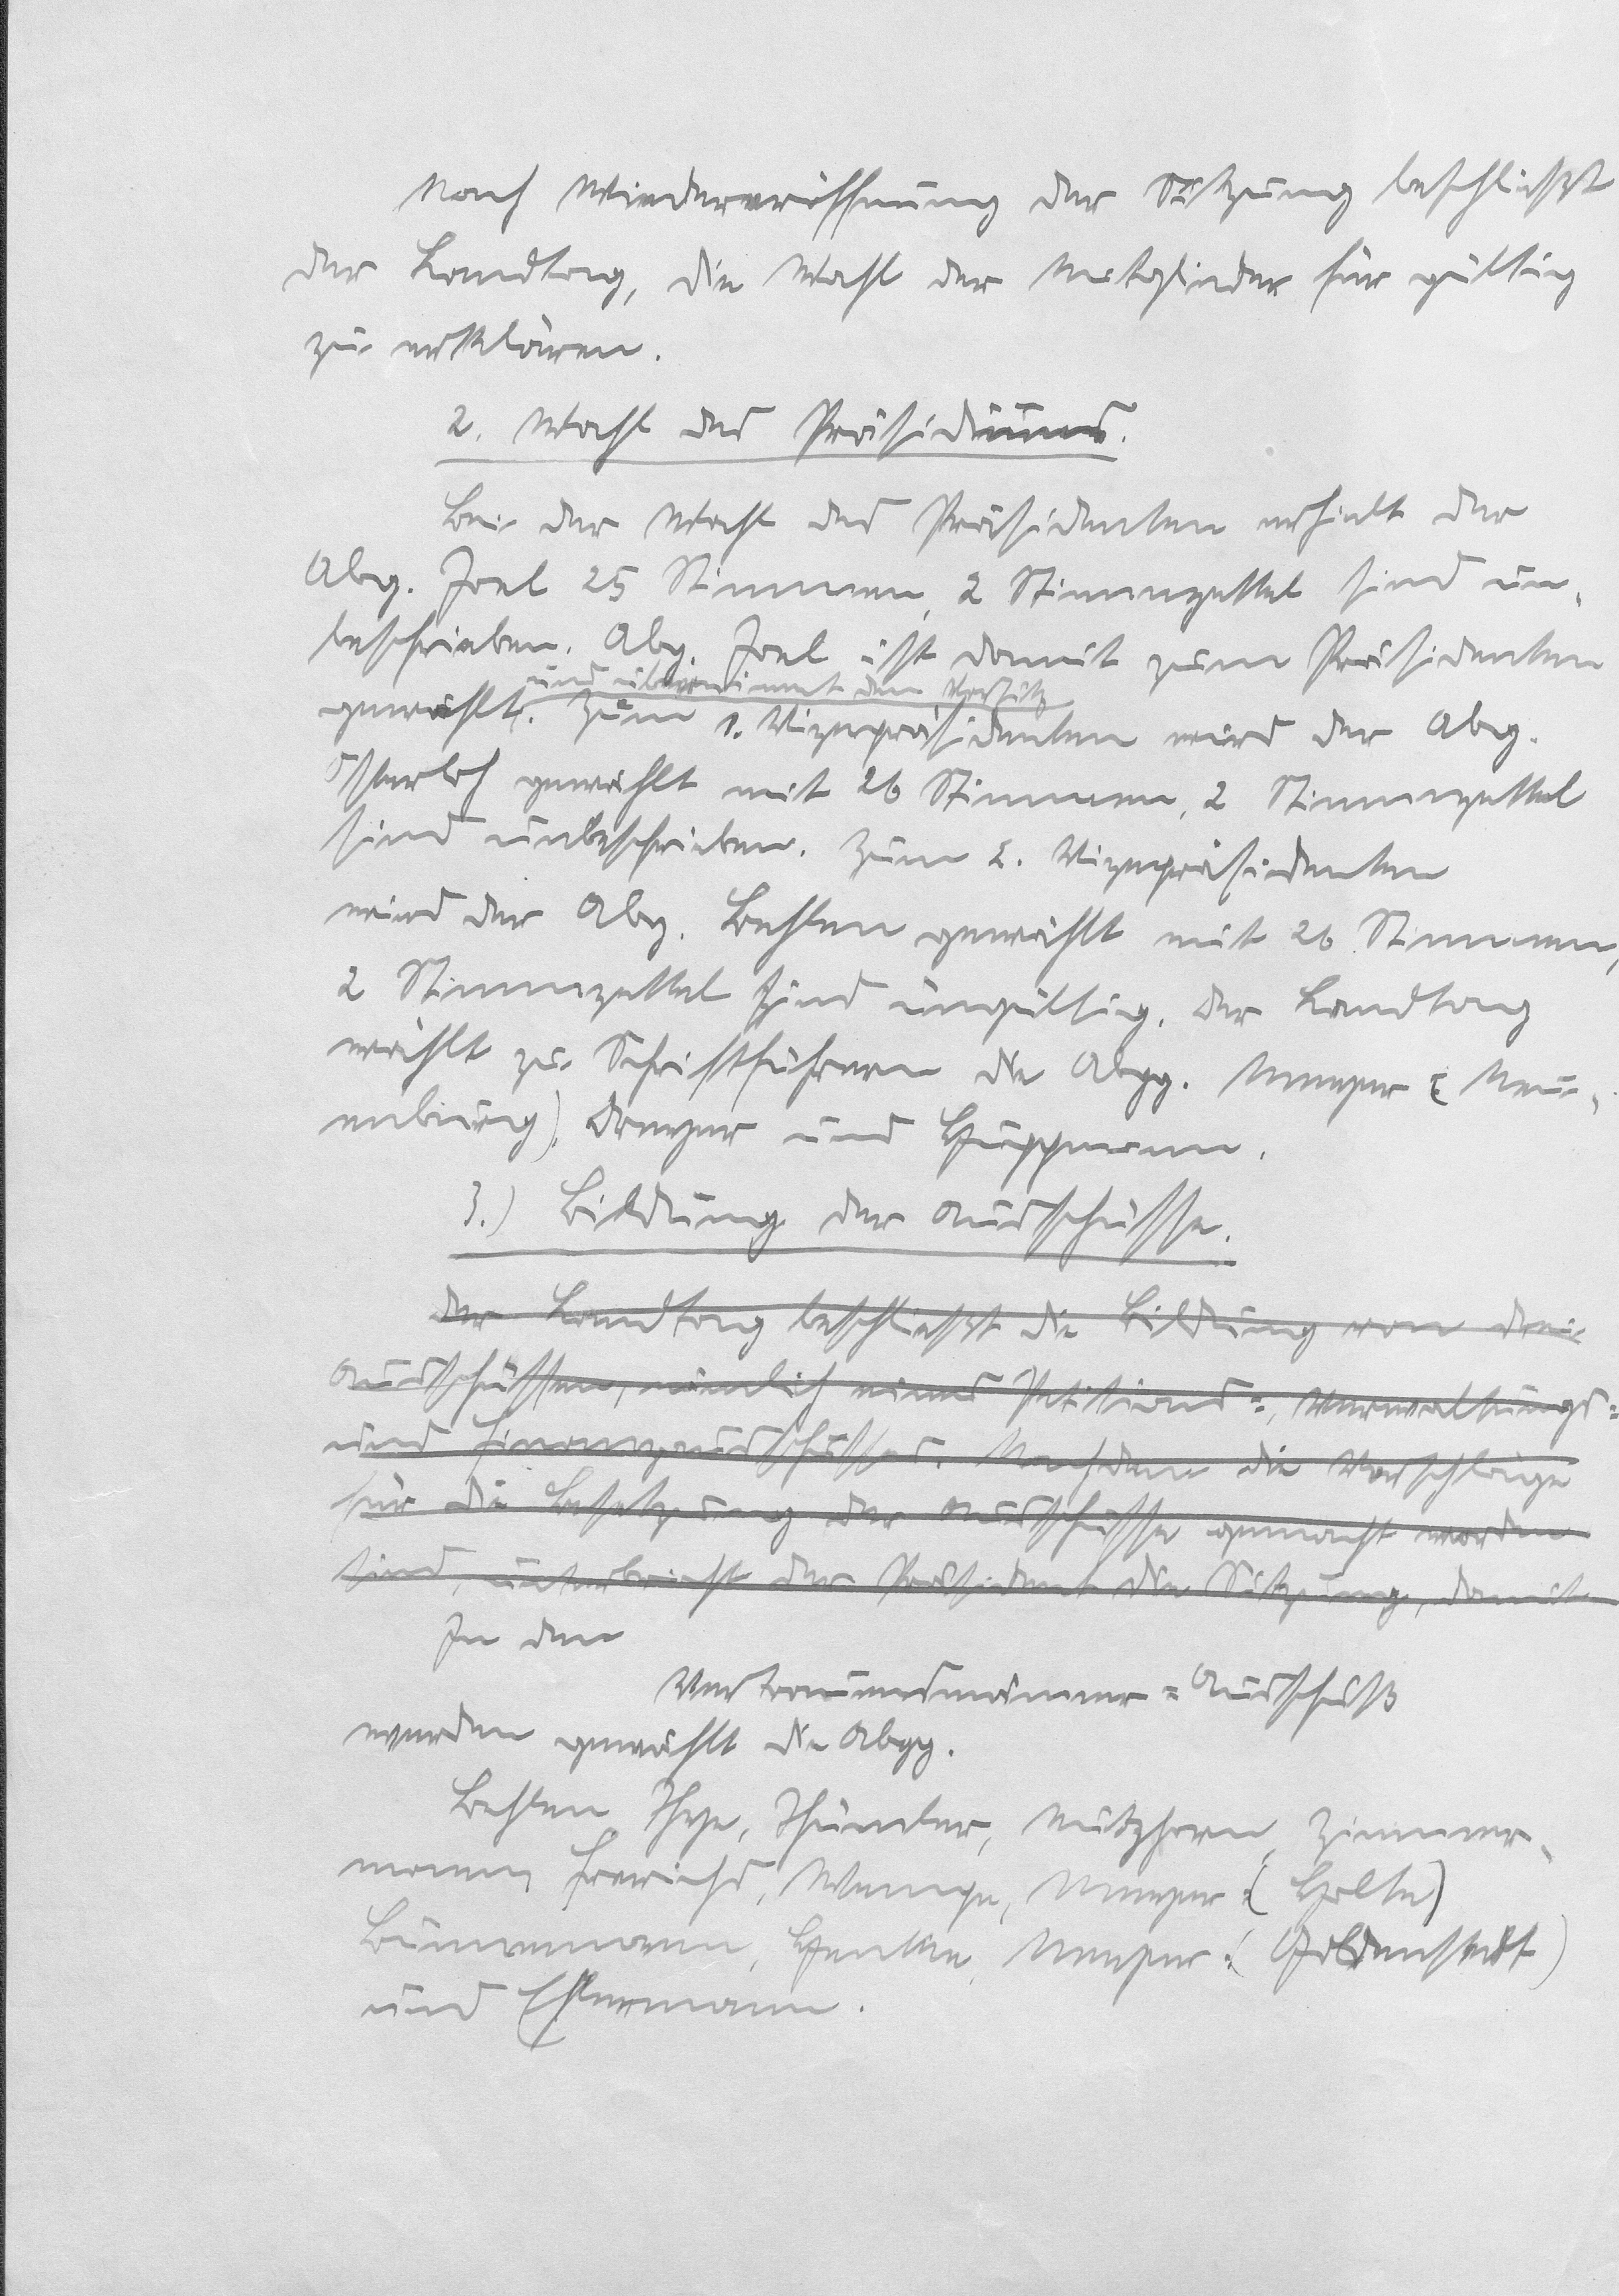 Nach Wiedereröffnung der Sitzung beschließt
der Landtag, die Wahl der Mitglieder für gültig
zu erklären.
2. Wahl des Präsidiums.
Bei der Wahl des Präsidenten erhielt der
Abg. Joel 25 Stimmen, 2 Stimmzettel sind un-
beschrieben. Abg. Joel ist damit zum Präsidenten
und übernimmt den Vorsitz
gewählt. Zum 1. Vizepräsidenten wird der Abg.
gewählt mit 26 Stimmen, 2 Stimmzettel
sind unbeschrieben. Zum 2. Vizepräsidenten
wird der Abg. Behlen gewählt mit 26 Stimmen,
2 Stimmzettel sind ungültig. Der Landtag
wählt zu Schriftführern die Abgg. Meyer (Neu-
enburg), Dreyer und Huppmann.
3.) Bildung der Ausschüsse.
Der Landtag beschließt die Bildung von drei
Ausschüssen, nämlich eines Petitions=, Verwaltungs=
und Finanzausschusses. Nachdem die Vorschläge
für die Besetzung der Ausschüsse gemacht worden
sind, unterbricht der Präsident die Sitzung, damit
In den
Vertrauensmänner=Ausschuß
werden gewählt die Abgg.
Behlen, Thye, Thümler, Nutzhorn, Zimmer-
mann, Frerichs, Wempe, Meyer (Holte)
Bünnemann, Henke, Meyer (Goldenstedt)
und